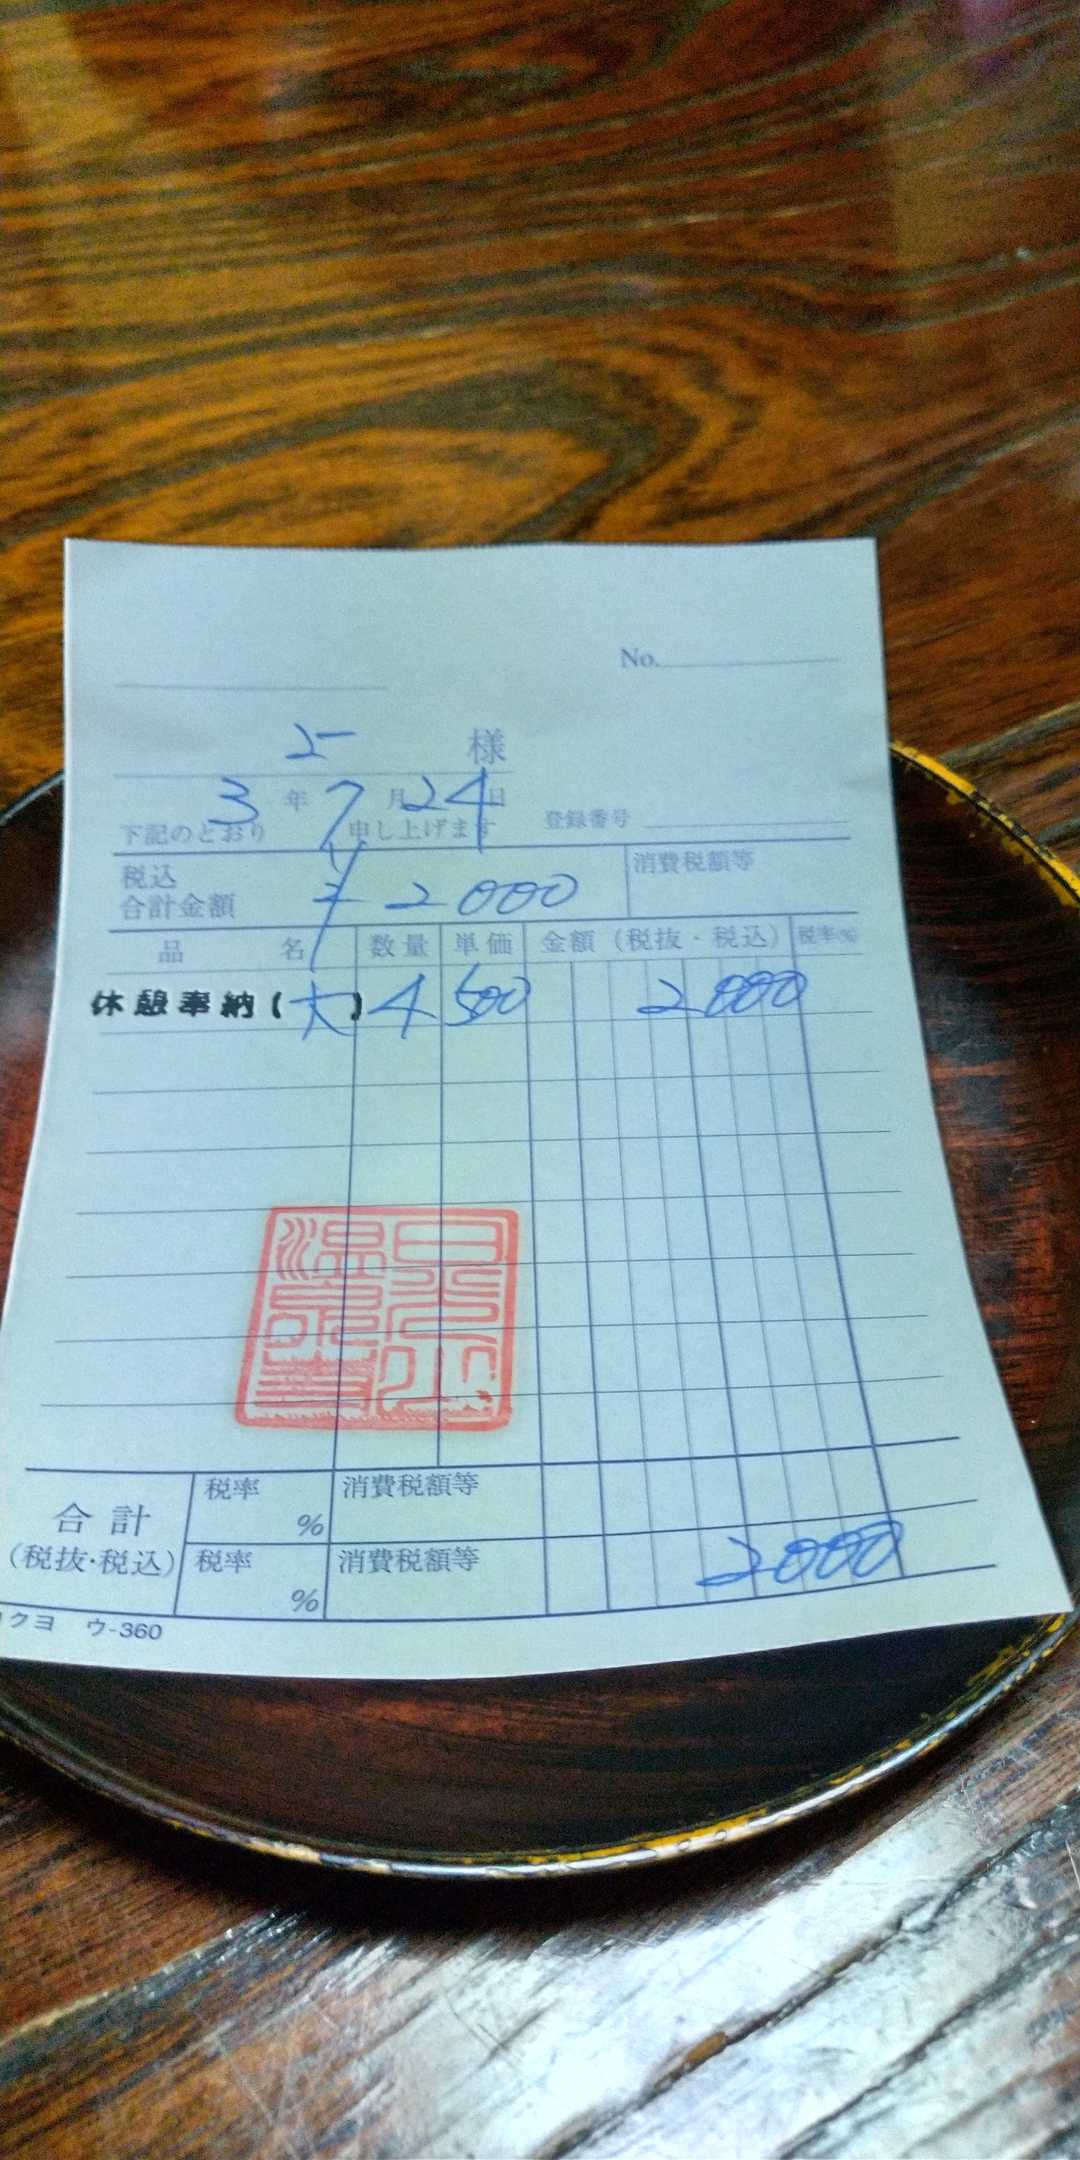 No.
様
3年7月24日
下記のとおり 申し上げます 登録番号
税込
合計金額 ¥2000 消費税額等
品名 数量 単価 金額(税抜・税込) 税率(%)
休憩奉納(大) 4 500 2000
合計 税率 % 消費税額等
(税抜・税込) 税率 % 消費税額等 2000
クヨ ウ-360